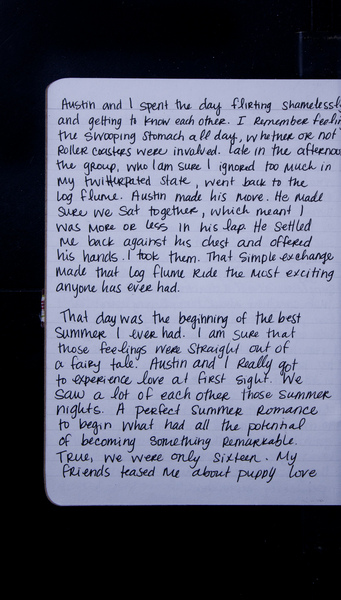 Austin and I spent the day flirting shamelessly
and getting to know each other. I remember feelin
the swooping stomach all day, whether or not
roller coasters were involved. Late in the afternoo
the group, who I am sure I ignored too much in
my twitterpated state, went back to the
log flume. Austin made his move. He made
sure we sat together, which meant I
was more or less in his lap. He settled
me back against his chest and offered
his hands. I took them. That simple exchange
made that log flume ride the most exciting
anyone has ever had.
That day was the beginning of the best
summer I ever had. I am sure that
those feelings were straight out of
a fairy tale. Austin and I really got
to experience love at first sight. We
saw a lot of each other those summer
nights. A perfect summer romance
to begin what had all the potential
of becoming something remarkable.
True, we were only sixteen. My
friends teased me about puppy love